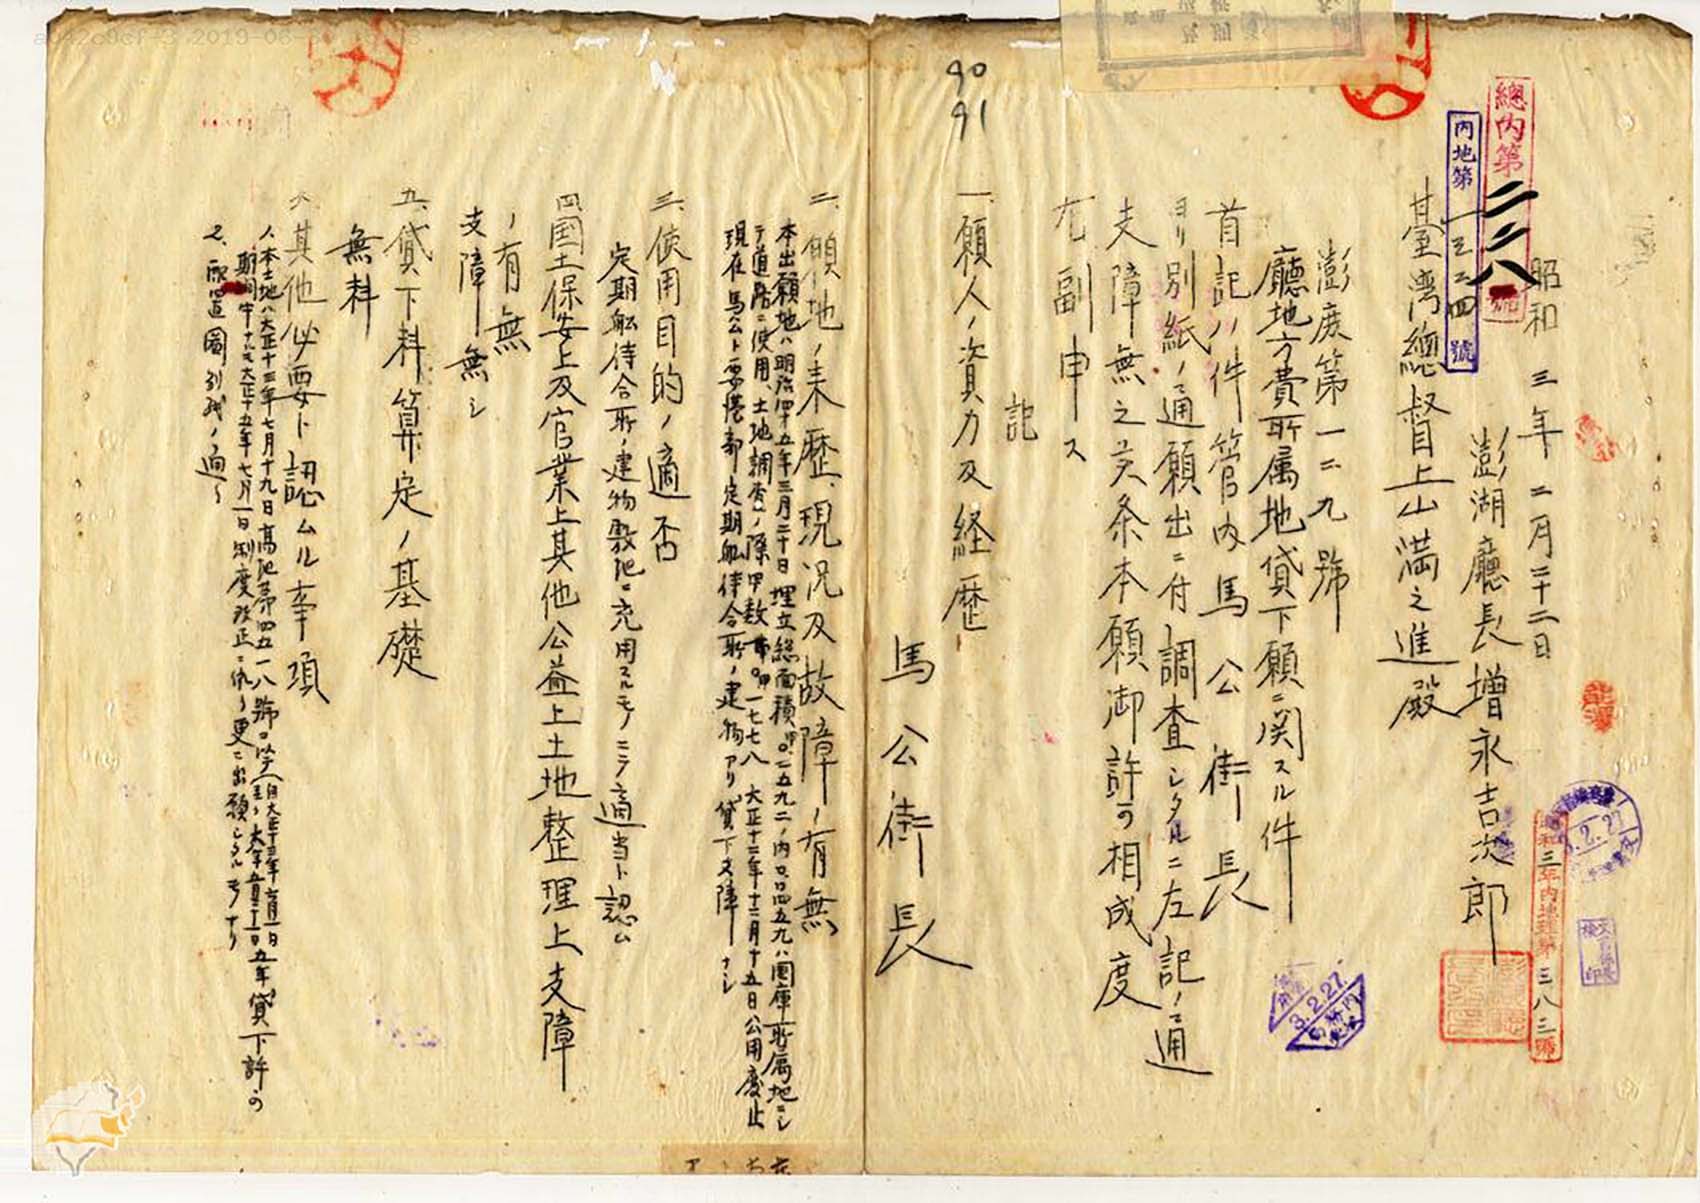 總內第二二八號
內地第一三三四號
昭和三年二月二十二日
澎湖廳長增永吉次郎
臺灣總督上山満之進殿
澎庶第一二九號
廳地方費所属地貸下願ニ関スル件
首記ノ件管内馬公街長
ヨリ別紙ノ通願出ニ付調査シタルニ左記ノ通
支障無之ニ条本願御許可相成度
右副申ス
記
一、願人ノ資力及経歴
馬公街長
二、願地ノ来歴、現况及故障ノ有無
本出願地ハ明治四十五年三月二十日埋立総面積甲〇一五九二ノ内〇四五九八國庫所属地ニシ
テ道路ニ使用、土地調査ノ際甲数〇一七七八大正十二年十二月十五日公用廢止
現在馬公ト要港部定期船待合所ノ建物アリ貸下支障ナシ
三、使用目的ノ適否
定期船待合所ノ建物敷地ニ充用スルモノニテ適当ト認ム
四、国土保安上及官業上其他公益上土地整理上支障
ノ有無
支障無シ
五、貸下料算定ノ基礎
無料
六、其他必要ト認ムル事項
1、本土地ハ大正十三年七月十九日高地第四五一八號ヲ以テ五年貸下許可
期間中大正十五年七月一日制度改正ニ依リ更ニ出願シタルモノナリ
2、配置圖別紙ノ通リ
90
91
3.2.27
3.2.27
昭和三年内地理第三八三號